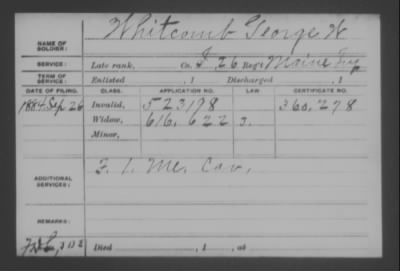 NAME OF SOLDIER: Whitcomb George W
SERVICE: Late rank, Co. I, 26 Reg't Maine Inf
TERM OF SERVICE: Enlisted , 1 Discharged , 1
DATE OF FILING. CLASS. APPLICATION NO. LAW. CERTIFICATE NO.
1884 Sep 26 Invalid, 523198 360,278
Widow, 616,622
Minor,
ADDITIONAL SERVICES: F. 1. Me. Cav.
REMARKS:
Died , 1 , at